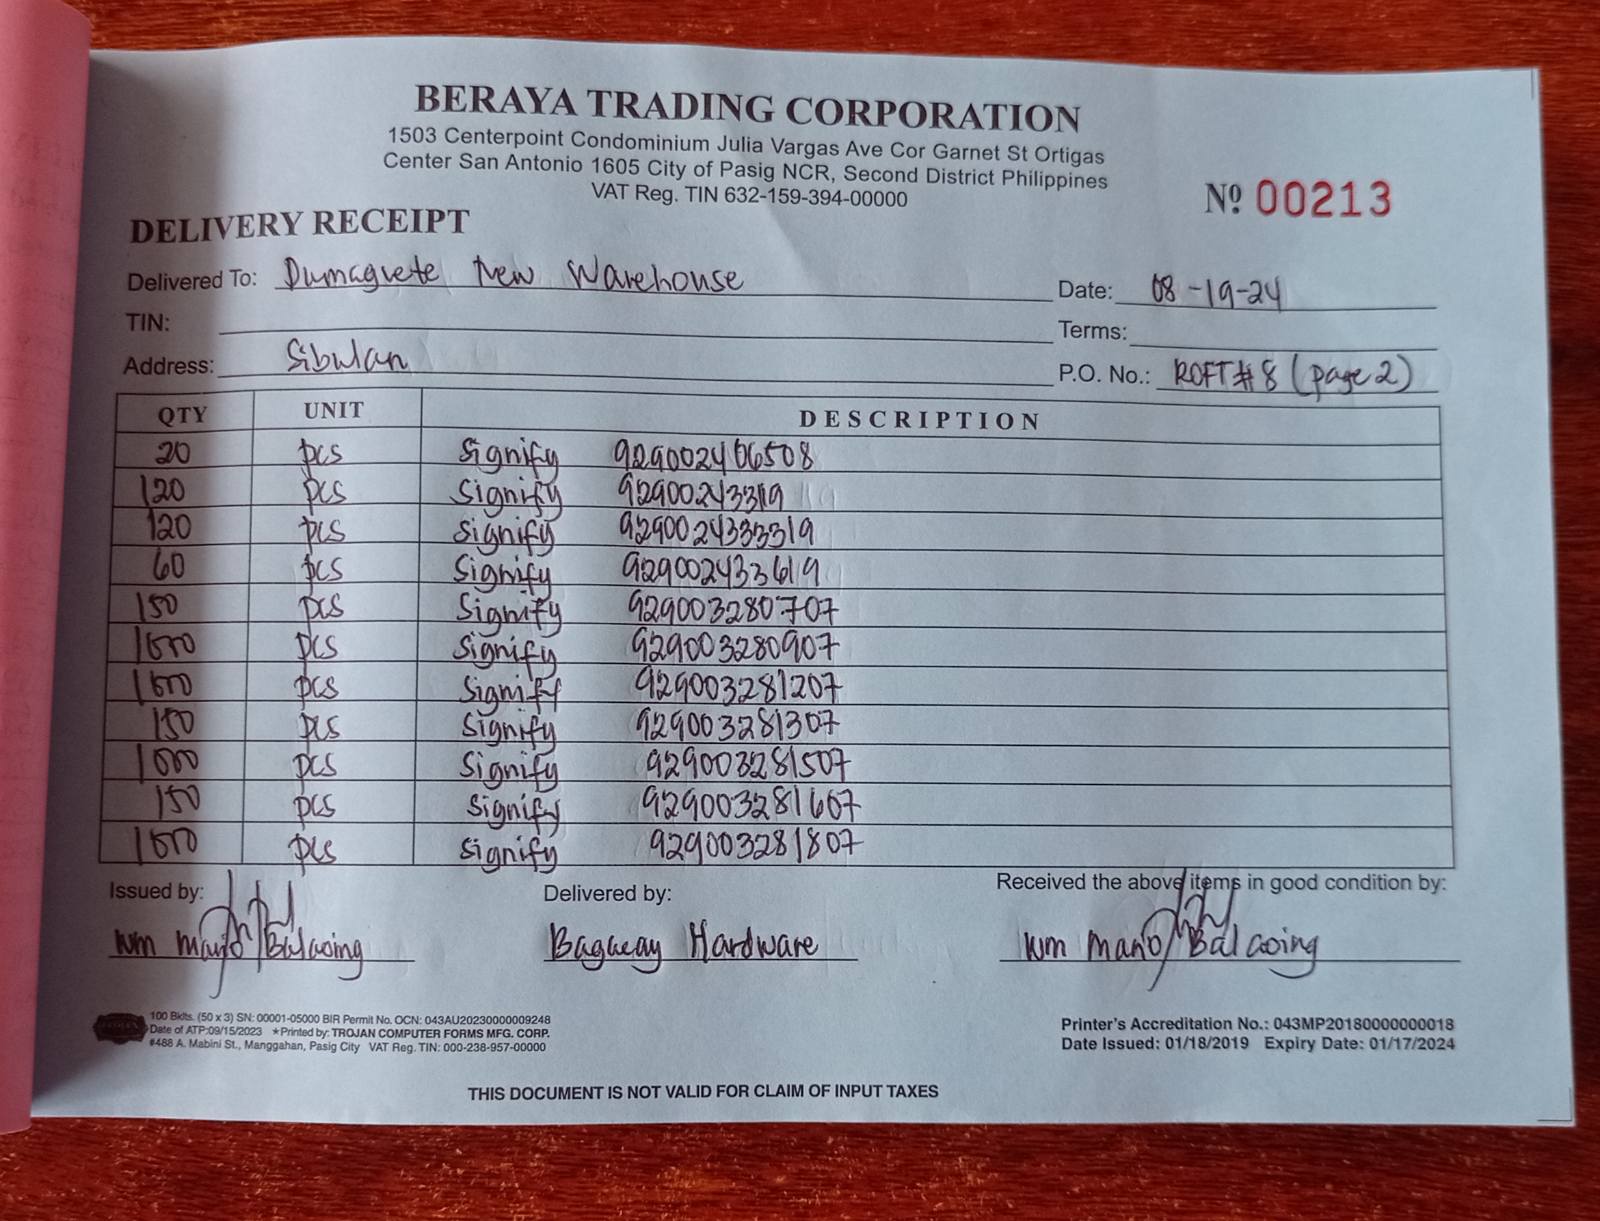 BERAYA TRADING CORPORATION
1503 Centerpoint Condominium Julia Vargas Ave Cor Garnet St Ortigas
Center San Antonio 1605 City of Pasig NCR, Second District Philippines
VAT Reg. TIN 632-159-394-00000
Nº 00213
DELIVERY RECEIPT
Delivered To: Dumaguete New Warehouse
Date: 08-19-24
TIN:
Terms:
Address: Sibulan
P.O. No.: ROFT#8 (page 2)
QTY UNIT DESCRIPTION
20 pcs Signify 929002406508
120 pcs Signify
120 pcs Signify 929002433319
60 pcs Signify 929002433619
150 pcs Signify 929003280707
pcs Signify 929003280907
pcs Signify 929003281207
150 pcs Signify 929003281307
pcs Signify 929003281507
150 pcs Signify 929003281607
pcs Signify 929003281807
Issued by:
Delivered by:
Received the above items in good condition by:
Hardware
100 Bklts. (50 x 3) SN: 00001-05000 BIR Permit No. OCN: 043AU20230000009248
Date of ATP:09/15/2023 ★Printed by: TROJAN COMPUTER FORMS MFG. CORP.
#488 A. Mabini St., Manggahan, Pasig City VAT Reg. TIN: 000-238-957-00000
Printer's Accreditation No.: 043MP20180000000018
Date Issued: 01/18/2019 Expiry Date: 01/17/2024
THIS DOCUMENT IS NOT VALID FOR CLAIM OF INPUT TAXES